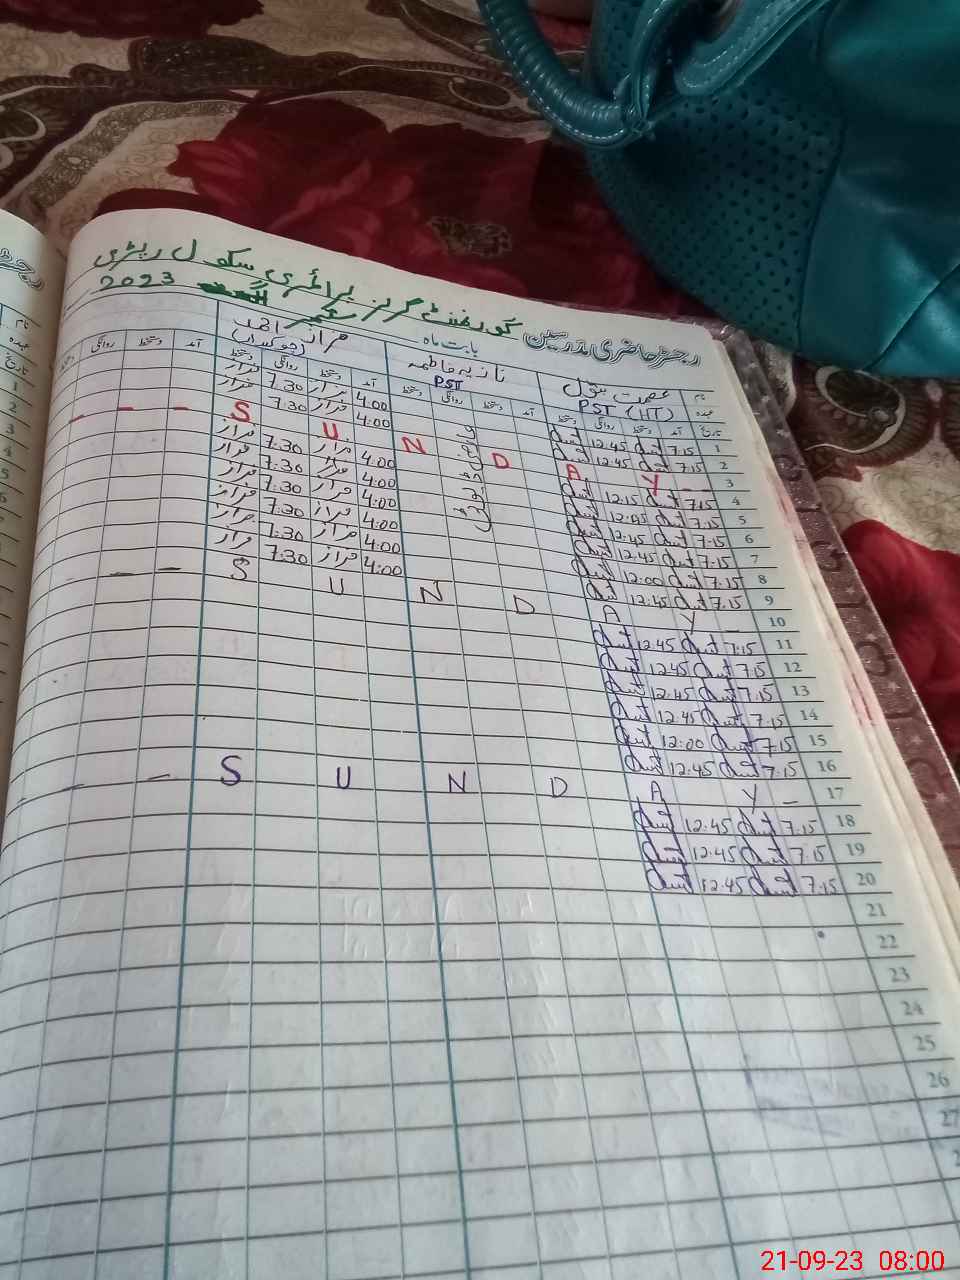 رجسٹر حاضری مدرسین گورنمنٹ گرلز پرائمری سکول ریٹری
بابت ماہ ستمبر 2023
نام عصمت بتول نازیہ فاطمہ فراز احمد
عہدہ PST (HT) PST (چوکیدار)
تاریخ آمد دستخط روانگی دستخط آمد دستخط روانگی دستخط آمد دستخط روانگی دستخط آمد دستخط روانگی دستخط
1 7.15 12.45 4.00 فراز 7.30 فراز
2 7.15 12.45 4:00 فراز 7:30 فراز
3 _ Y A D N U S _ _ _
4 7.15 12.15 4.00 فراز 7.30 فراز
5 7.15 12:45 4:00 فراز 7.30 فراز
6 7.15 12.45 4:00 فراز 7.30 فراز
7 7.15 12.45 4:00 فراز 7:30 فراز
8 7.15 12:00 4:00 فراز 7.30 فراز
9 7.15 12:45 4:00 فراز 7:30 فراز
10 _ Y A D N U S _ _ _
11 7:15 12.45
12 7.15 12.45
13 7.15 12.45
14 7.15 12.45
15 7.15 12:00
16 7.15 12.45
17 _ Y A D N U S _ _ _
18 7.15 12.45
19 7.15 12.45
20 7.15 12.45
21
22
23
24
25
26
27
21-09-23 08:00